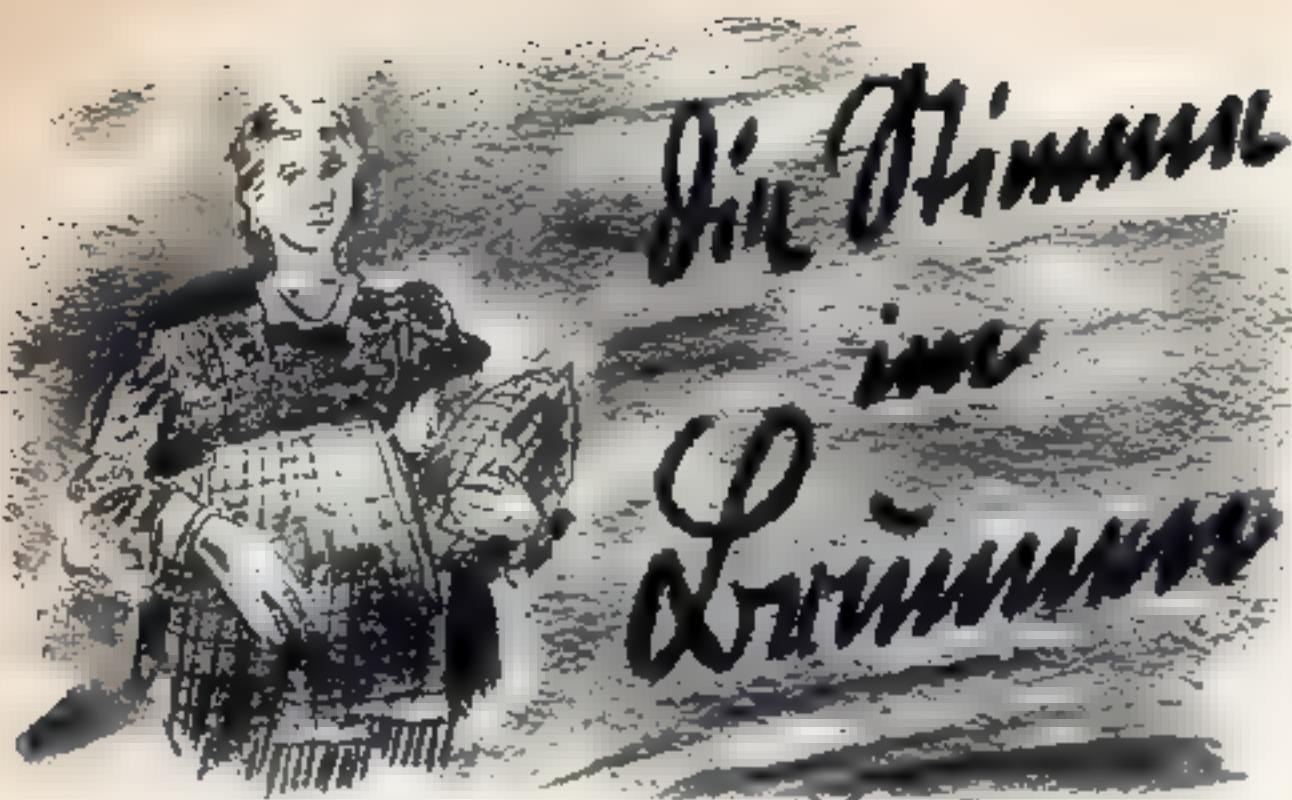 Die Stimme
im
Brunnen